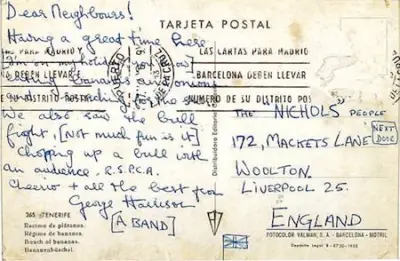 Dear Neighbours!
TARJETA POSTAL
Having a great time here
I'm on my
bananas onions
We also saw the bull
fight, [Not much fun is it]
Chopping up a bull with
an audience. R.S.P.C.A.
Cheerio + all the best from
George Harrison
[A BAND]
PARA MADRID Y
DEBEN LLEVAR E
SU DISTRITO POSTAL
LAS CARTAS PARA MADRID
BARCELONA DEBEN LLEVAR
NUMERO DE SU DISTRITO POS
THE "NICHOLS" PEOPLE
[NEXT DOOR]
172, MACKETS LANE
WOOLTON
LIVERPOOL 25.
ENGLAND
365 - TENERIFE
Racimo de plátanos.
Régime de bananes.
Bunch of bananas.
Bananenbüschel.
Distribuidora Editorial
FOTOCOLOR VALMAN, S. A. - BARCELONA - MOTRIL